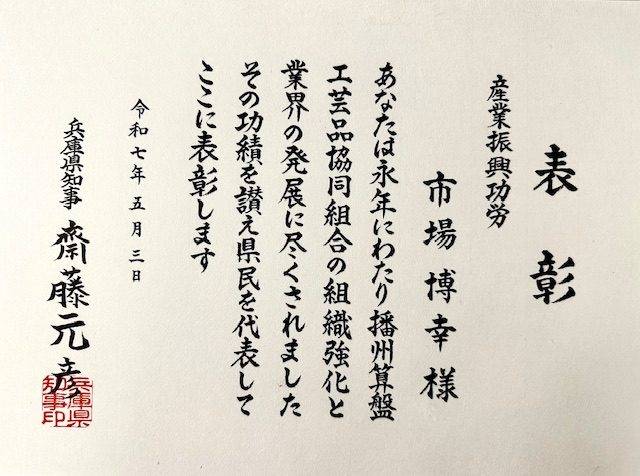 表彰
産業振興功労
市場博幸様
あなたは永年にわたり播州算盤
工芸品協同組合の組織強化と
業界の発展に尽くされました
その功績を讃え県民を代表して
ここに表彰します
令和七年五月三日
兵庫県知事 齋藤元彦
兵庫県知事印